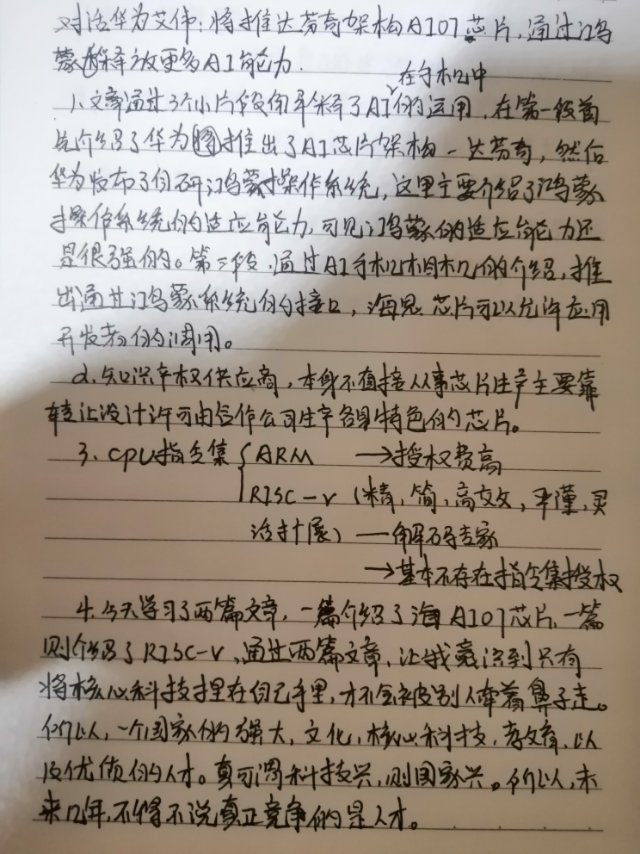 对话华为艾伟:将推达芬奇架构AIOT芯片,通过鸿
蒙释放更多AI能力.
在手机中
1.文章通过3个小片段解释了AI的运用,在第一段首
先介绍了华为推出了AI芯片架构-达芬奇,然后
华为发布了自研鸿蒙操作系统,这里主要介绍了鸿蒙
操作系统的适应能力,可见鸿蒙的适应能力还
是很强的。第三段,通过AI手机相机的介绍,推
出通过鸿蒙系统的接口,海思芯片可以允许应用
开发者的调用。
2.知识产权供应商,本身不直接从事芯片生产主要靠
转让设计许可由合作公司生产各具特色的芯片。
3.CPU指令集 ARM →授权费高
RISC-V (精,简,高效,严谨,灵
活扩展) —解码专家
→基本不存在指令集授权
4.今天学习了两篇文章,一篇介绍了海AIOT芯片,一篇
则介绍了RISC-V,通过两篇文章,让我意识到只有
将核心科技握在自己手里,才不会被别人牵着鼻子走。
所以,一个国家的强大,文化,核心科技,教育,以
及优质的人才。真可谓科技兴,则国家兴。所以,未
来几年,不得不说真正竞争的是人才。